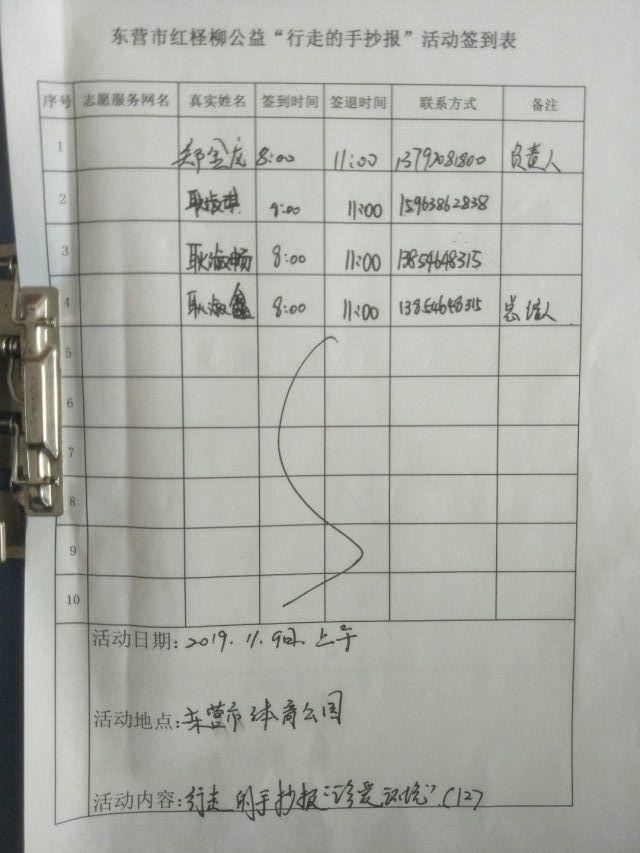 东营市红柽柳公益“行走的手抄报”活动签到表
序号 志愿服务网名 真实姓名 签到时间 签退时间 联系方式 备注
1 郑金庆 8:00 11:00 13792081800 负责人
2 耿淑琪 8:00 11:00 15963862838
3 耿淑畅 8:00 11:00 13854648315
4 耿淑鑫 8:00 11:00 13854648315 总结人
5
6
7
8
9
10
活动日期: 2019.11.9日 上午
活动地点: 东营市体育公园
活动内容: 行走的手抄报“珍爱环境”(12)